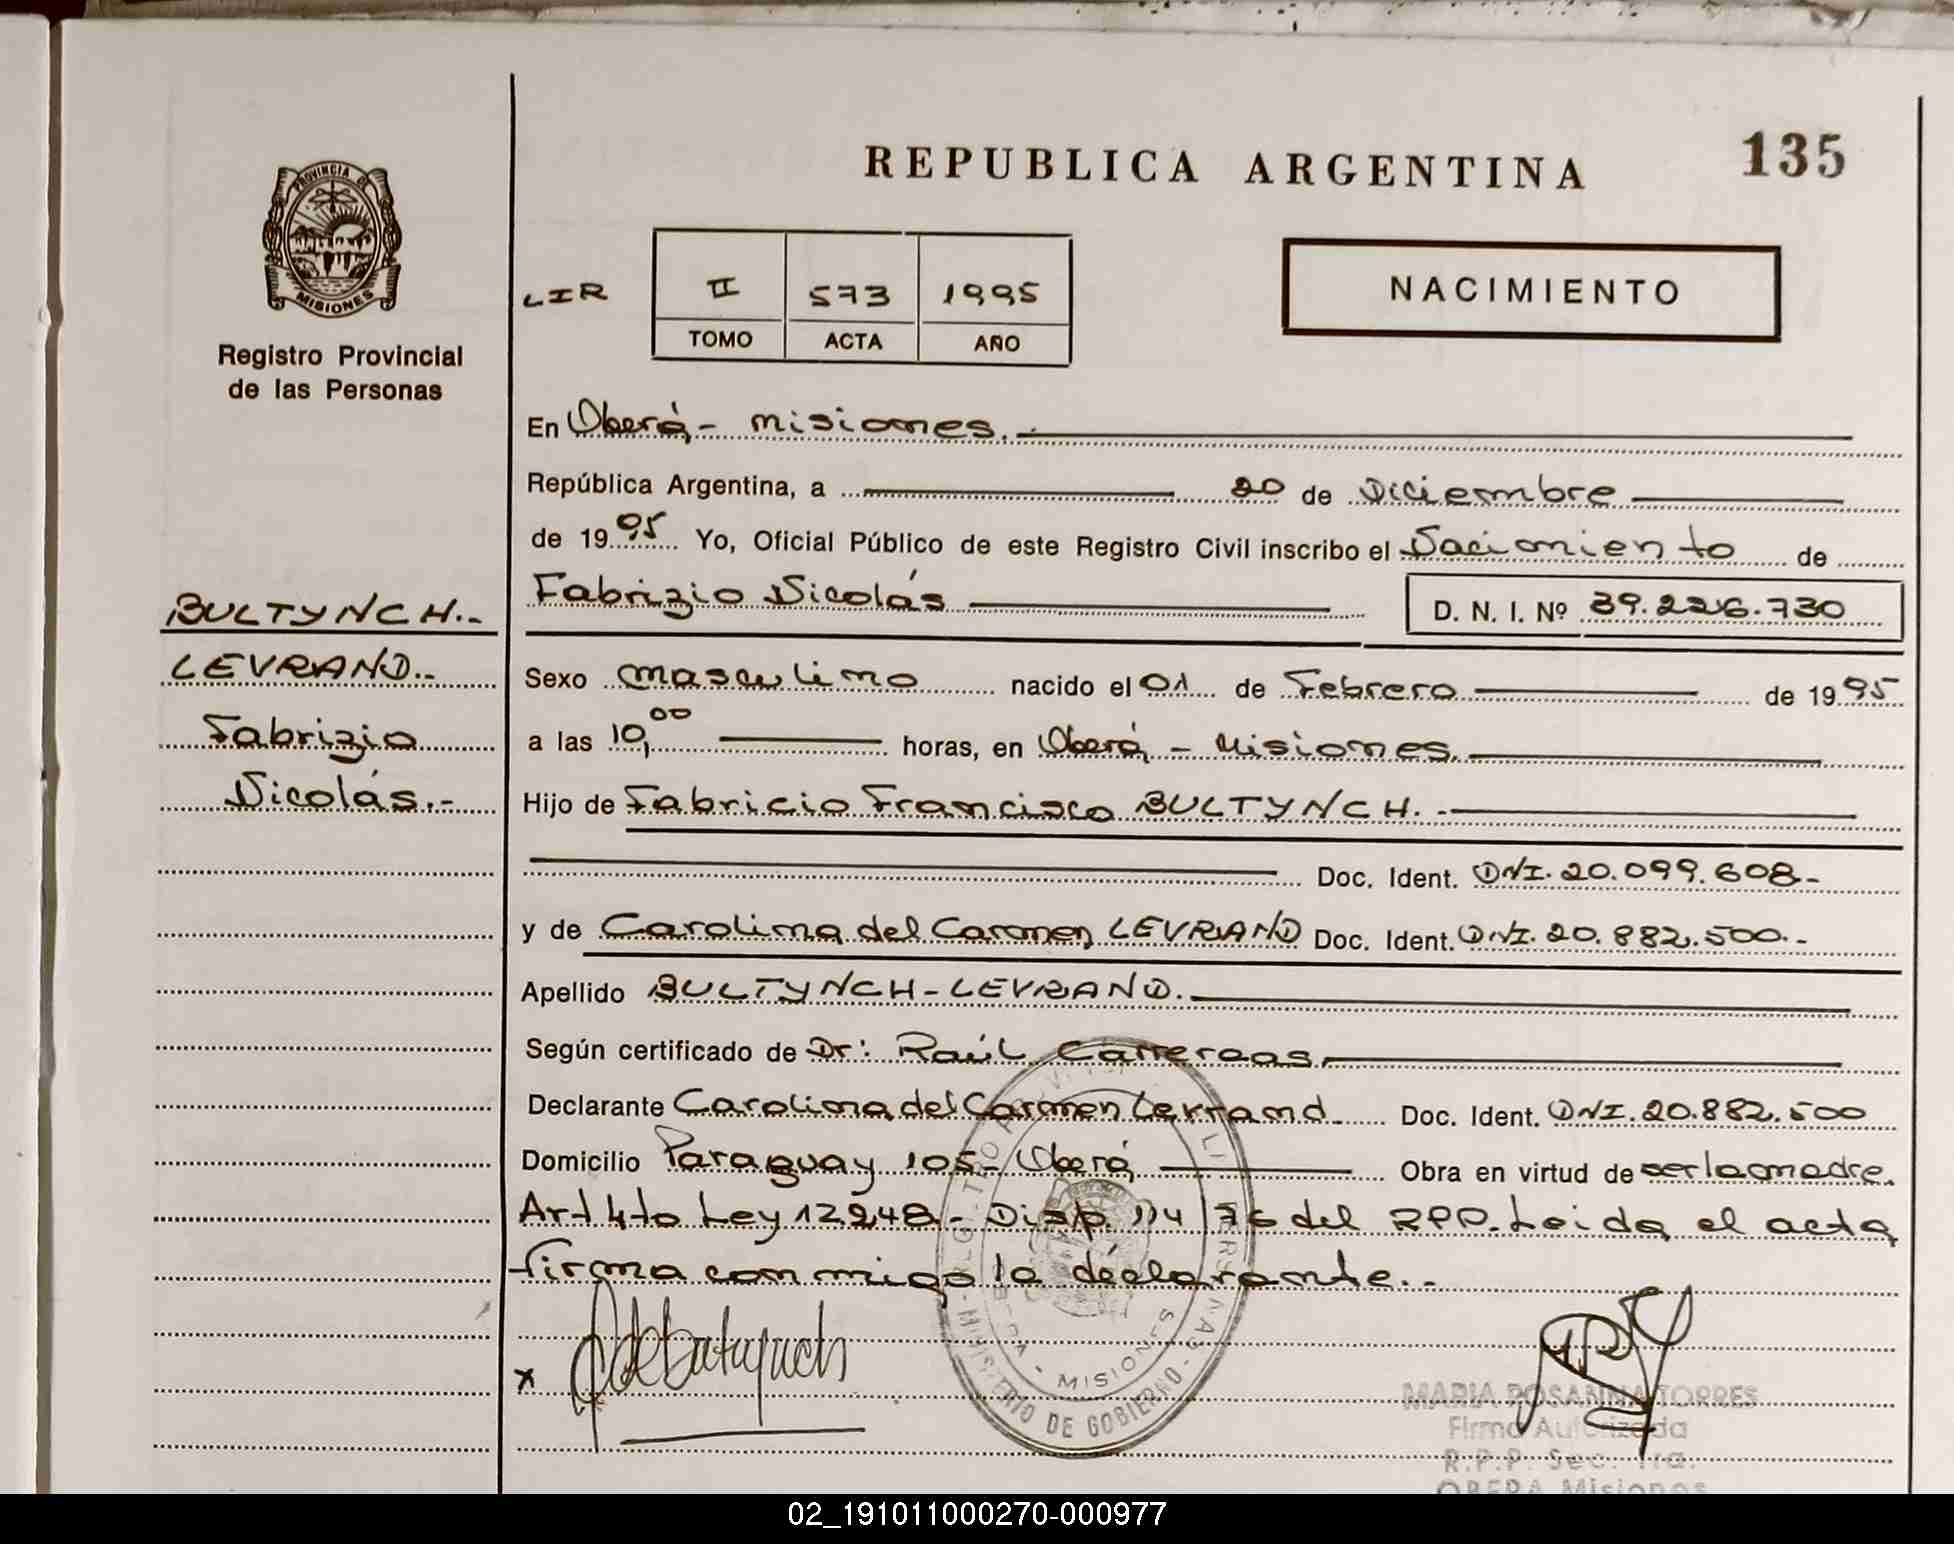 REPUBLICA ARGENTINA
135
PROVINCIA DE
MISIONES
Registro Provincial
de las Personas
LIR
II 573 1995
TOMO ACTA AÑO
NACIMIENTO
En Oberá - Misiones.-
República Argentina, a 20 de Diciembre
de 1995 Yo, Oficial Público de este Registro Civil inscribo el Nacimiento de
Fabrizio Nicolás D. N. I. Nº 39.226.730
BULTYNCH.-
LEVRAND.-
Fabrizio
Nicolás.-
Sexo masculino nacido el 01 de Febrero de 1995
a las 10,00 horas, en Oberá - Misiones.
Hijo de Fabricio Francisco BULTYNCH.-
Doc. Ident. DNI. 20.099.608-
y de Carolina del Carmen LEVRAND Doc. Ident. DNI. 20.882.500.-
Apellido BULTYNCH-LEVRAND.
Según certificado de Dr: Raúl Carreras,
Declarante Carolina del Carmen Levrand Doc. Ident. DNI. 20.882.500
Domicilio Paraguay 105- Oberá Obra en virtud de ser la madre.
Art 4to Ley 12248- Disp. 114/76 del RPP. Leida el acta
firma conmigo la declarante.-
x
MINISTERIO DE GOBIERNO
MISIONES
MARIA ROSANNA TORRES
Firma Autorizada
R.P.P. Sec. 1ra.
OBERA Misiones
02_191011000270-000977